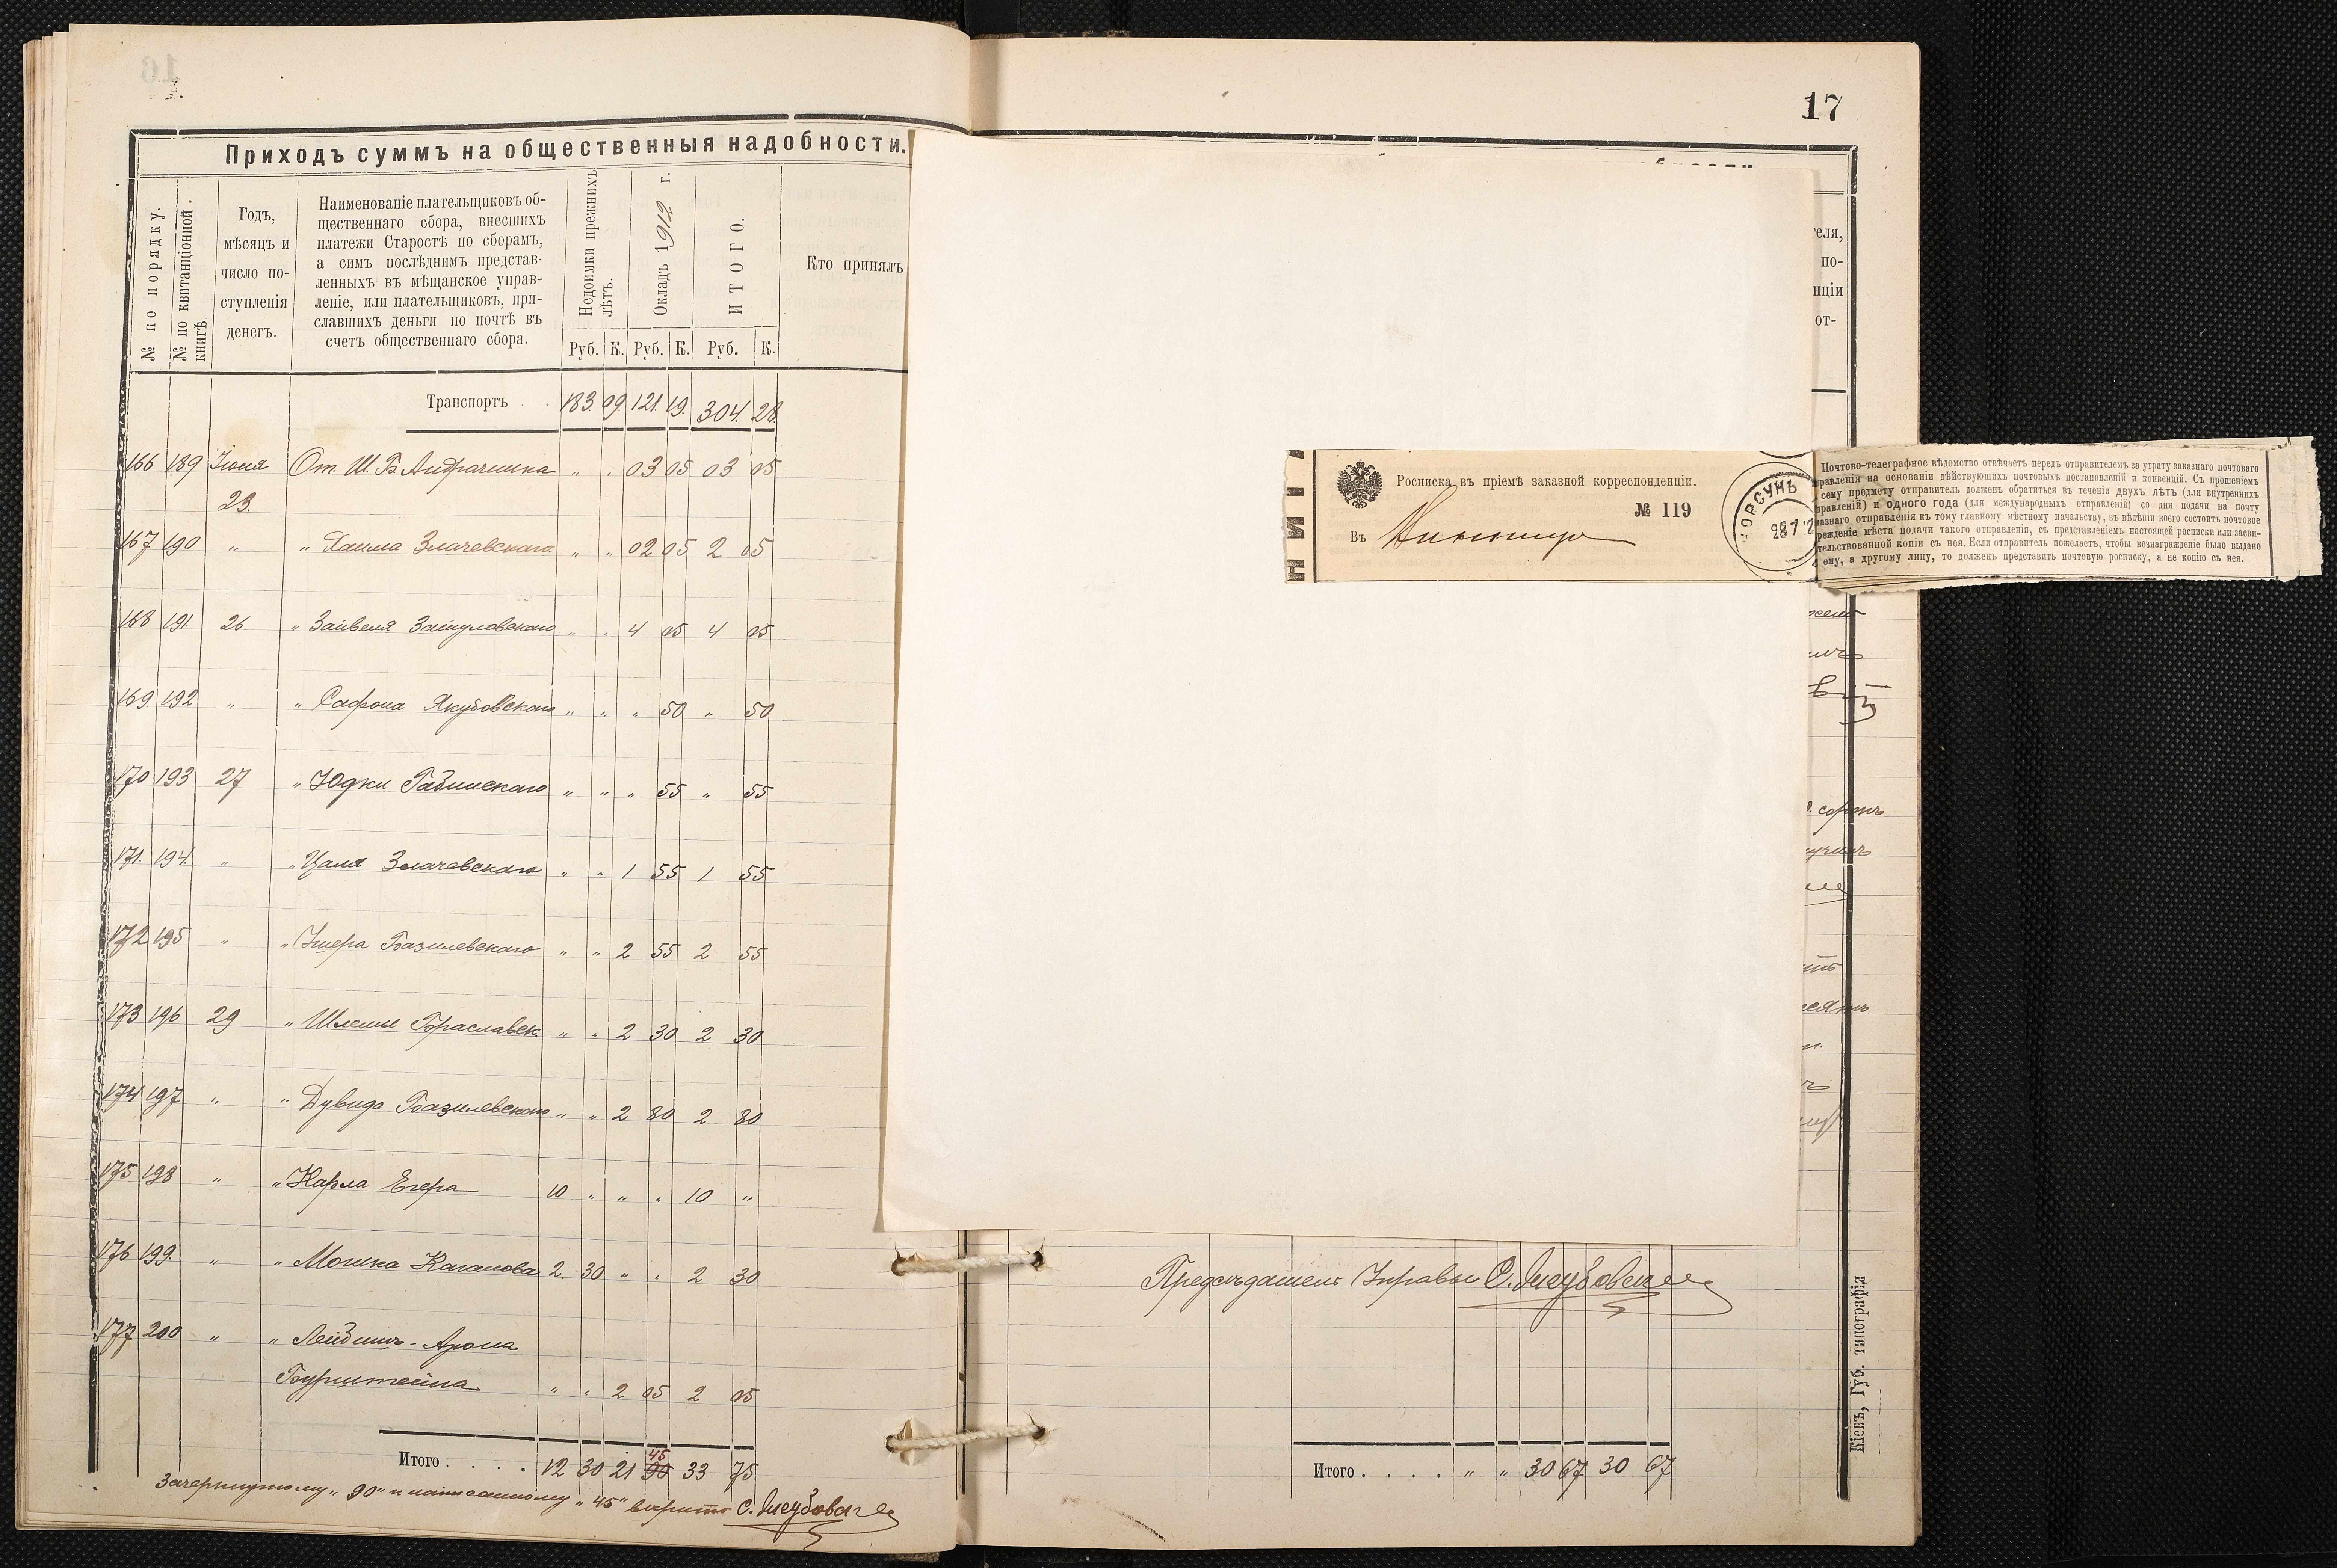 17
Приходъ суммъ на общественныя надобности.
№ по порядку.
№ по квитанціонной книгѣ.
Годъ,
мѣсяцъ и
число по-
ступленія
денегъ.
Наименованіе плательщиковъ об-
щественнаго сбора, внесшихъ
платежи Старостѣ по сборамъ,
а симъ послѣднимъ представ-
ленныхъ въ мѣщанское управ-
леніе, или плательщиковъ, при-
славшихъ деньги по почтѣ въ
счетъ общественнаго сбора.
Недоимки прежнихъ лѣтъ.
Окладъ 1912 г.
ИТОГО.
Кто принялъ
Руб. К. Руб. К. Руб. К.
Транспортъ . . 183. 09. 121. 19. 304. 28.
166 189 Іюня От Ш. Б. " . 03 05 03 05
23.
167 190 " " Хаима Злачевскаго " " 02 05 2 05
168 191 26 " Зайвеля " . 4 05 4 05
169. 192 " " Сафона Якубовскаго " " " 50 " 50
170 193 27 " Юдки " " " 55 " 55
171. 194. " " Цаля Злачевскаго " " 1 55 1 55
172 195 " " Базилевскаго " " 2 55 2 55
173 196 29 " Шлемы Браславск. " " 2 30 2 30
174 197 " " Дувида Базилевскаго " " 2 80 2 80
175 198 " " Карла Егера 10 " " " 10 "
176 199. " " Мошка Каганова 2. 30 " " 2 30
177 200 " " Арона
Бурштейна " " 2 05 2 05
45
Итого . . . . 12 30 21 90 33 75
Зачеркнутому „90" и написанному „45" вѣрить С. Якубовскій
еля,
по-
нціи
от-
Росписка въ пріемѣ заказной корреспонденціи.
№ 119
Въ
КОРСУНЬ
28 7 12
Почтово-телеграфное вѣдомство отвѣчаетъ передъ отправителемъ за утрату заказнаго почтоваго
правленія на основаніи дѣйствующихъ почтовыхъ постановленій и конвенцій. Съ прошеніемъ
сему предмету отправитель долженъ обратиться въ теченіи двухъ лѣтъ (для внутреннихъ
правленій) и одного года (для международныхъ отправленій) со дня подачи на почту
казнаго отправленія къ тому главному мѣстному начальству, въ вѣдѣніи коего состоитъ почтовое
реждeніе мѣста подачи такого отправленія, съ представленіемъ настоящей росписки или засви-
тельствованной копіи съ нея. Если отправитель пожелаетъ, чтобы вознагражденіе было выдано
ему, а другому лицу, то долженъ представить почтовую росписку, а не копію съ нея.
Предсѣдатель Управы С. Якубовскій
Итого . . . . " " 30 67 30 67
Кіевъ, Губ. типографія